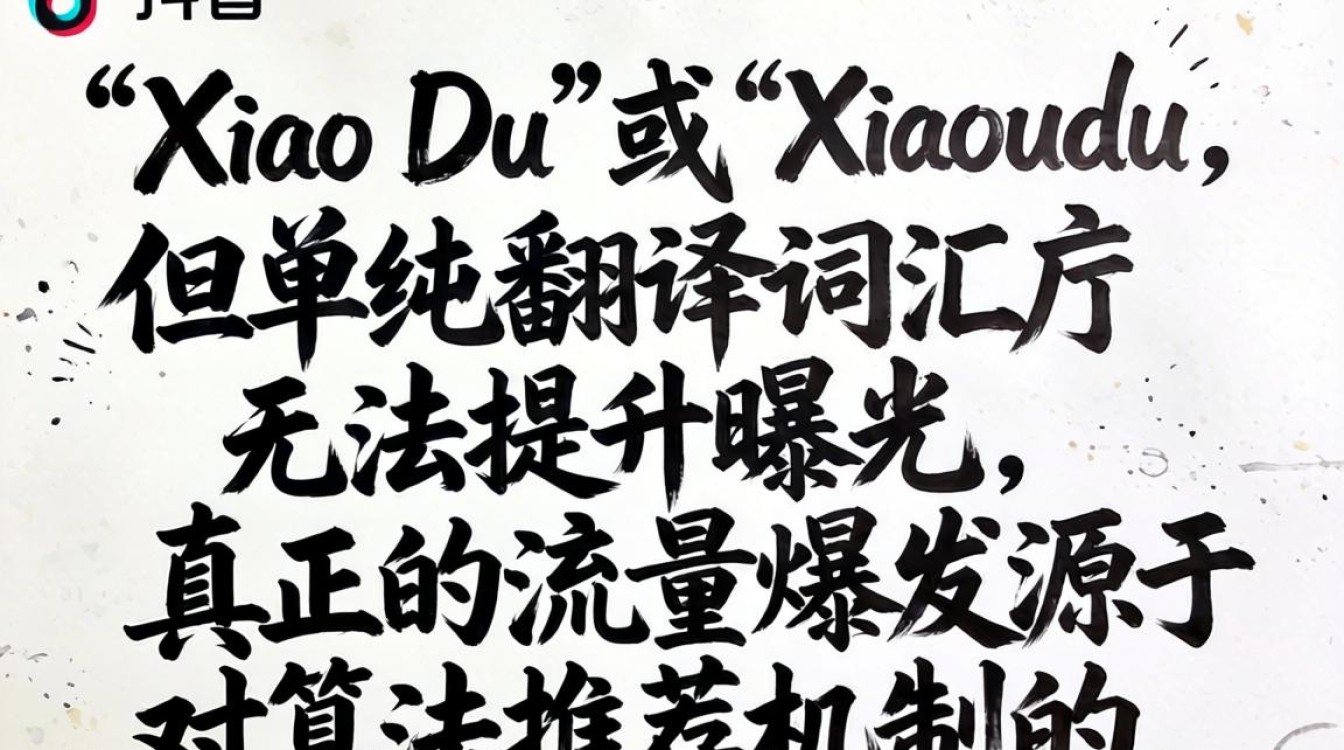 抖音
“Xiao Du”或“Xiaoudu,
但单纯翻译词汇庁
无法提升曝光,
真正的流量爆发源于
对算法推荐机制的